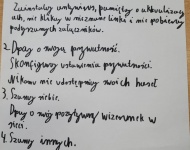 Zainstaluj antywirus, pamiętaj o aktualizacja
ach, nie klikaj w nieznane linki i nie pobieraj
podejrzanych załączników.
2. Dbaj o swoją prywatność.
Skonfiguruj ustawienia prywatności.
Nikomu nie udostępniaj swoich haseł
3. Szanuj siebie.
Dbaj o swój pozytywny wizerunek w
sieci.
4. Szanuj innych.